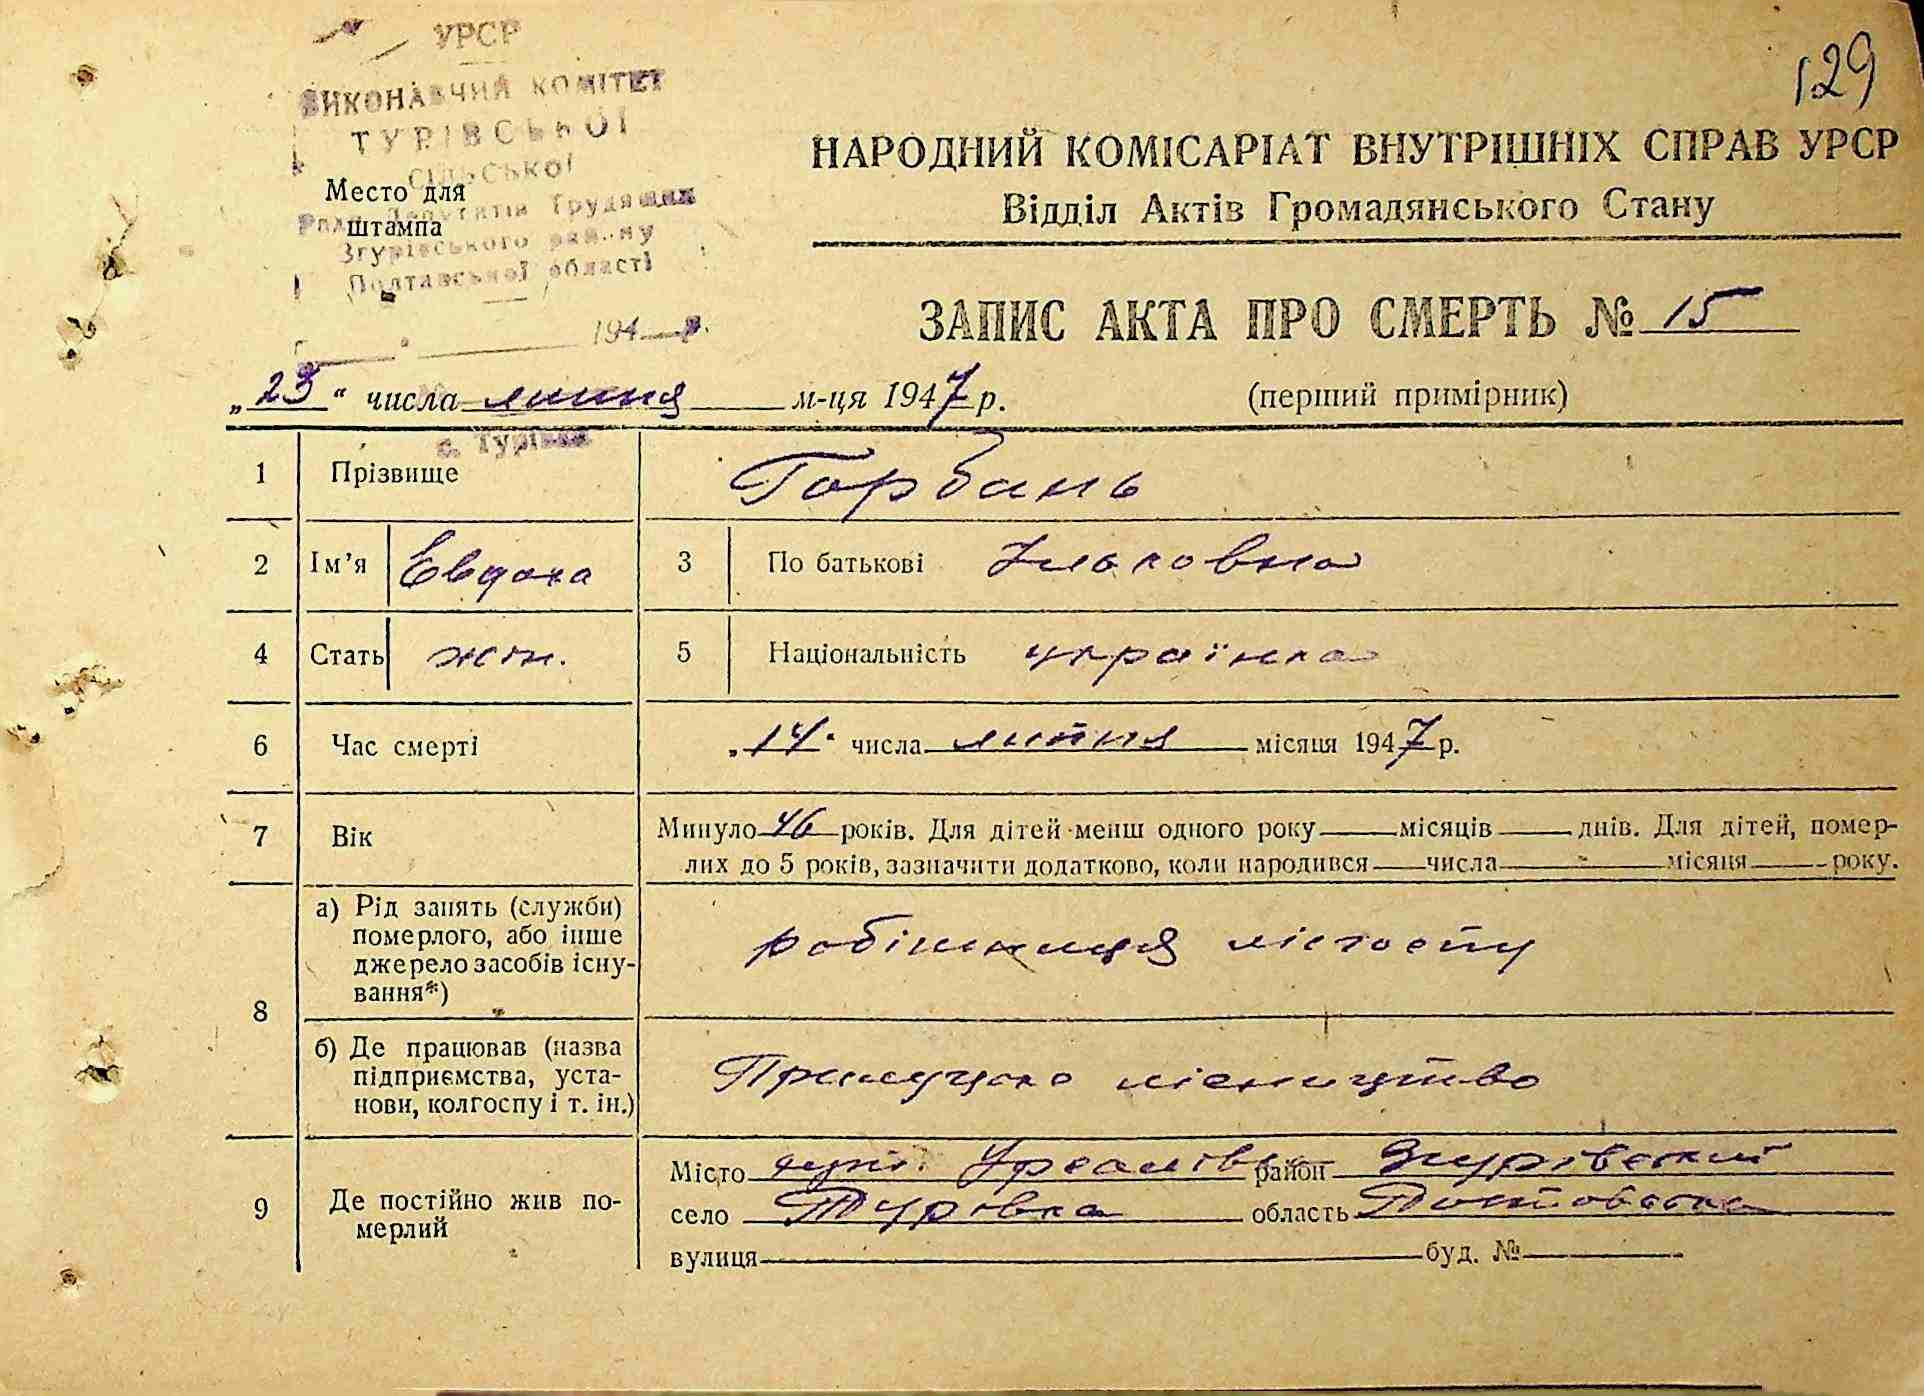 129
УРСР
ВИКОНАВЧИЙ КОМІТЕТ
ТУРІВСЬКОЇ
СІЛЬСЬКОЇ
Ради Депутатів Трудящих
Згурівського району
Полтавської області
194 р.
с. Турівка
Место для
штампа
НАРОДНИЙ КОМІСАРІАТ ВНУТРІШНІХ СПРАВ УРСР
Відділ Актів Громадянського Стану
ЗАПИС АКТА ПРО СМЕРТЬ № 15
„23“ числа липня м-ця 1947 р.
(перший примірник)
1 Прізвище Горбань
2 Ім'я Евдокa 3 По батькові Ільковна
4 Стать жін. 5 Національність українка
6 Час смерті „14“ числа липня місяця 1947 р.
7 Вік Минуло 46 років. Для дітей менш одного року місяців днів. Для дітей, помер-
лих до 5 років, зазначити додатково, коли народився числа місяця року.
8 а) Рід занять (служби)
померлого, або інше
джерело засобів існу-
вання*)
робітниця
б) Де працював (назва
підприємства, уста-
нови, колгоспу і т. ін.)
Прилуцьке лісництво
9 Де постійно жив по-
мерлий
Місто район Згурівський
село Турівка область Полтавська
вулиця буд. №